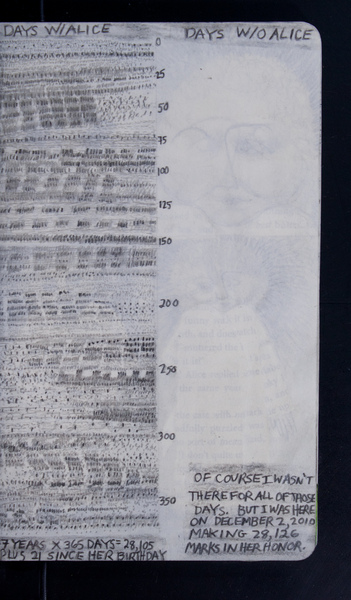 DAYS W/ALICE
DAYS W/O ALICE
0
25
50
75
100
125
150
200
250
300
350
7 YEARS X 365 DAYS = 28,105
PLUS 21 SINCE HER BIRTHDAY
OF COURSE I WASN'T
THERE FOR ALL OF THOSE
DAYS. BUT I WAS HERE
ON DECEMBER 2, 2010
MAKING 28,126
MARKS IN HER HONOR.